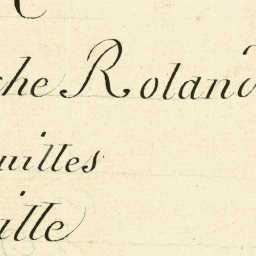 che Roland
uilles
alle